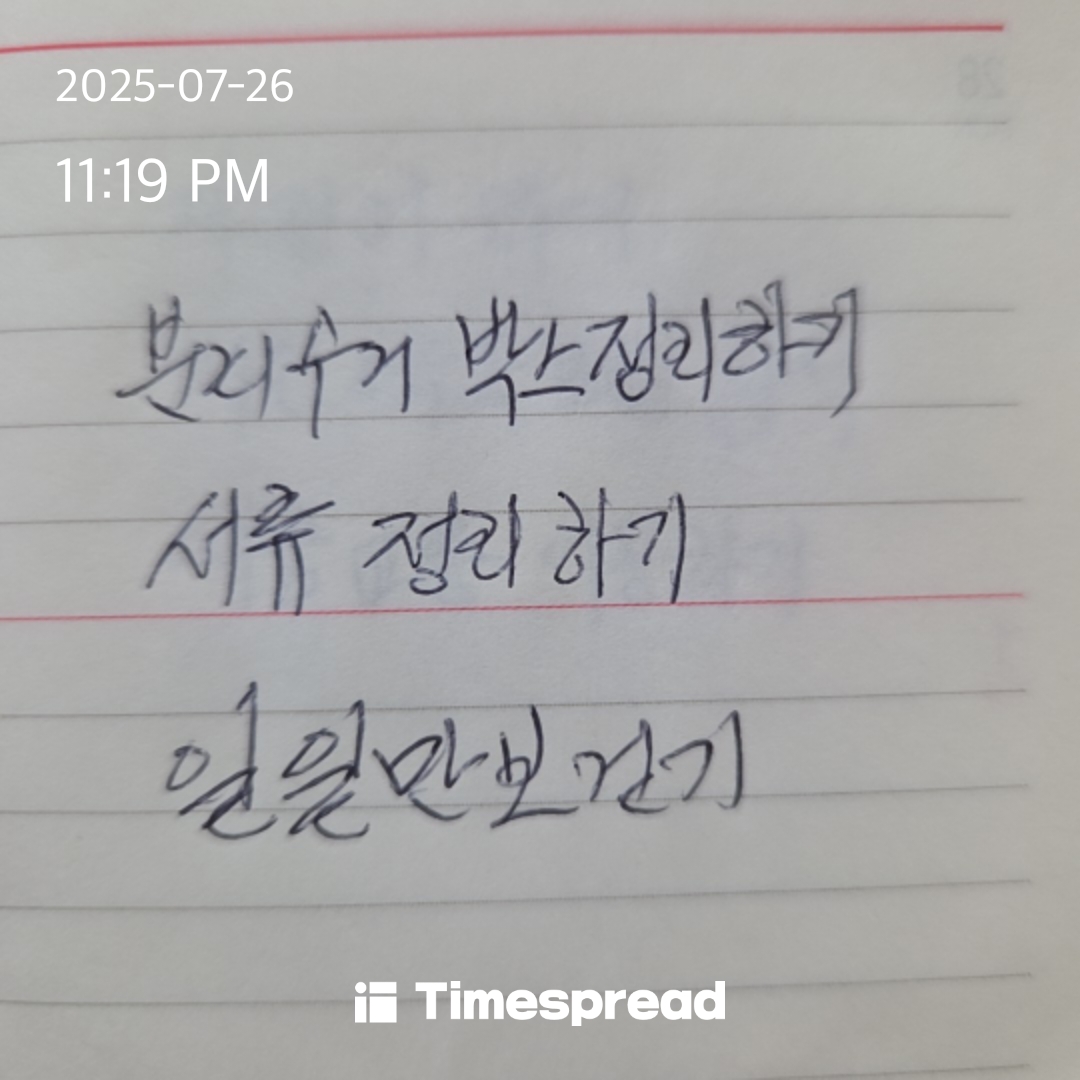 2025-07-26
11:19 PM
분리수거 박스정리하기
서류 정리하기
일일만보걷기
Timespread